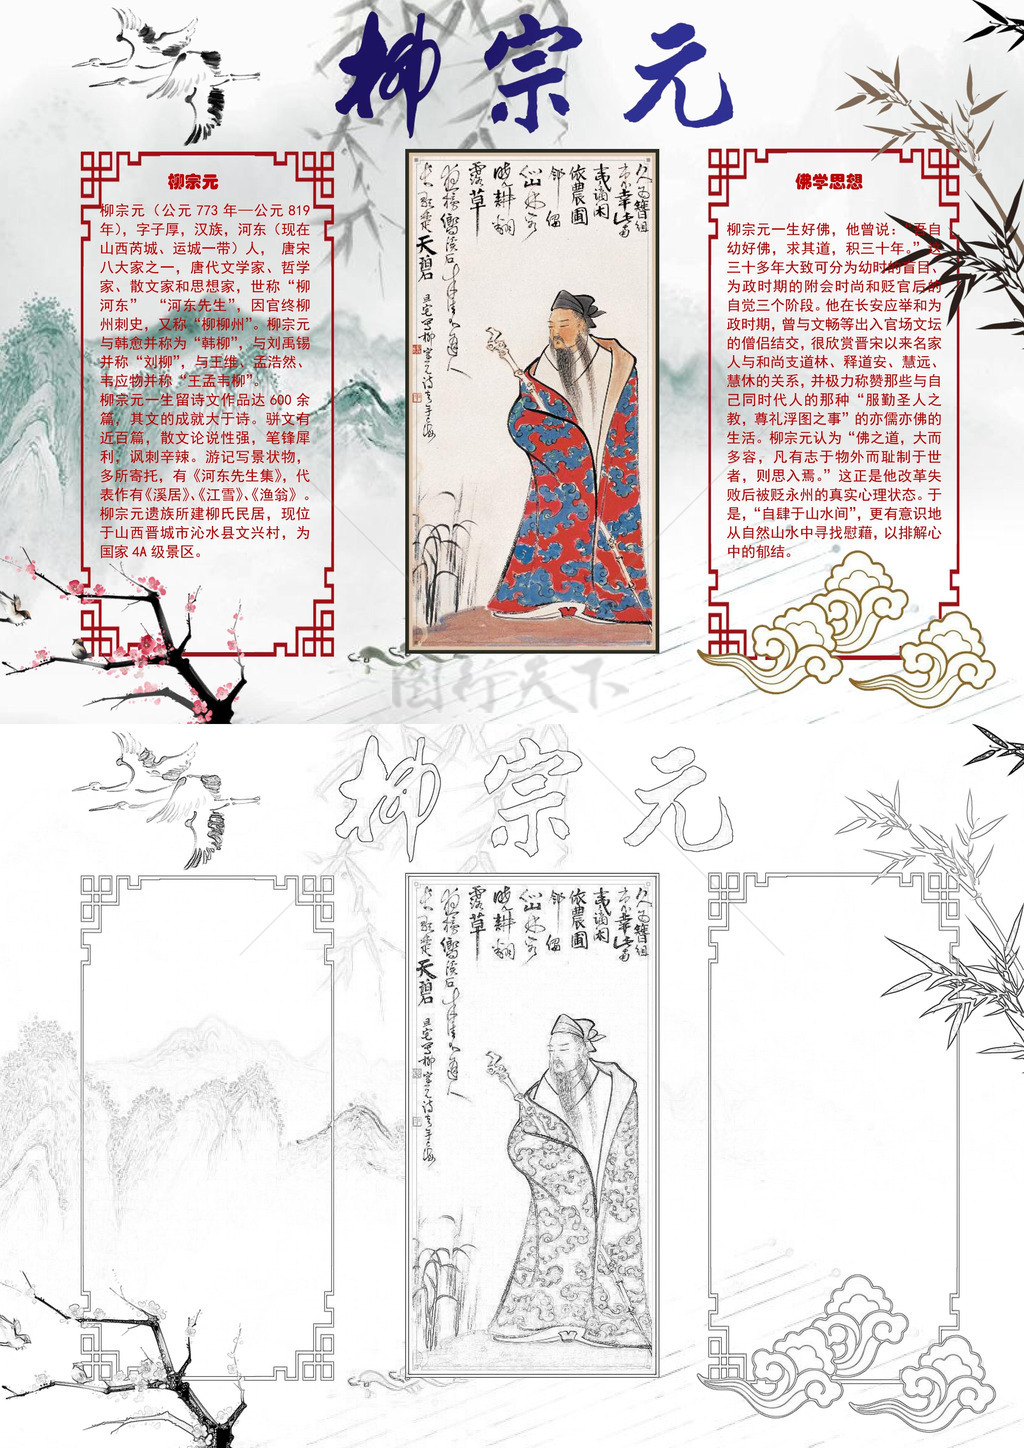 柳宗元
柳宗元
柳宗元（公元 773 年—公元 819
年），字子厚，汉族，河东（现在
山西芮城、运城一带）人， 唐宋
八大家之一，唐代文学家、哲学
家、散文家和思想家，世称“柳
河东” “河东先生”，因官终柳
州刺史，又称“柳柳州”。柳宗元
与韩愈并称为“韩柳”，与刘禹锡
并称“刘柳”，与王维、孟浩然、
韦应物并称“王孟韦柳”。
柳宗元一生留诗文作品达 600 余
篇，其文的成就大于诗。骈文有
近百篇，散文论说性强，笔锋犀
利，讽刺辛辣。游记写景状物，
多所寄托，有《河东先生集》，代
表作有《溪居》、《江雪》、《渔翁》。
柳宗元遗族所建柳氏民居，现位
于山西晋城市沁水县文兴村，为
国家 4A 级景区。
久为簪组
束幸此南
夷谪闲
依農圃
邻偶
似山林客
晓耕翻
露草
夜榜響溪石
天碧
佛学思想
柳宗元一生好佛，他曾说：“吾自
幼好佛，求其道，积三十年。”这
三十多年大致可分为幼时的盲目、
为政时期的附会时尚和贬官后的
自觉三个阶段。他在长安应举和为
政时期，曾与文畅等出入官场文坛
的僧侣结交，很欣赏晋宋以来名家
人与和尚支道林、释道安、慧远、
慧休的关系，并极力称赞那些与自
己同时代人的那种“服勤圣人之
教，尊礼浮图之事”的亦儒亦佛的
生活。柳宗元认为“佛之道，大而
多容，凡有志于物外而耻制于世
者，则思入焉。”这正是他改革失
败后被贬永州的真实心理状态。于
是，“自肆于山水间”，更有意识地
从自然山水中寻找慰藉，以排解心
中的郁结。
图行天下
柳宗元
久为簪组
束幸此南
夷谪闲
依農圃
邻偶
似山林客
晓耕翻
露草
夜榜響溪石
天碧